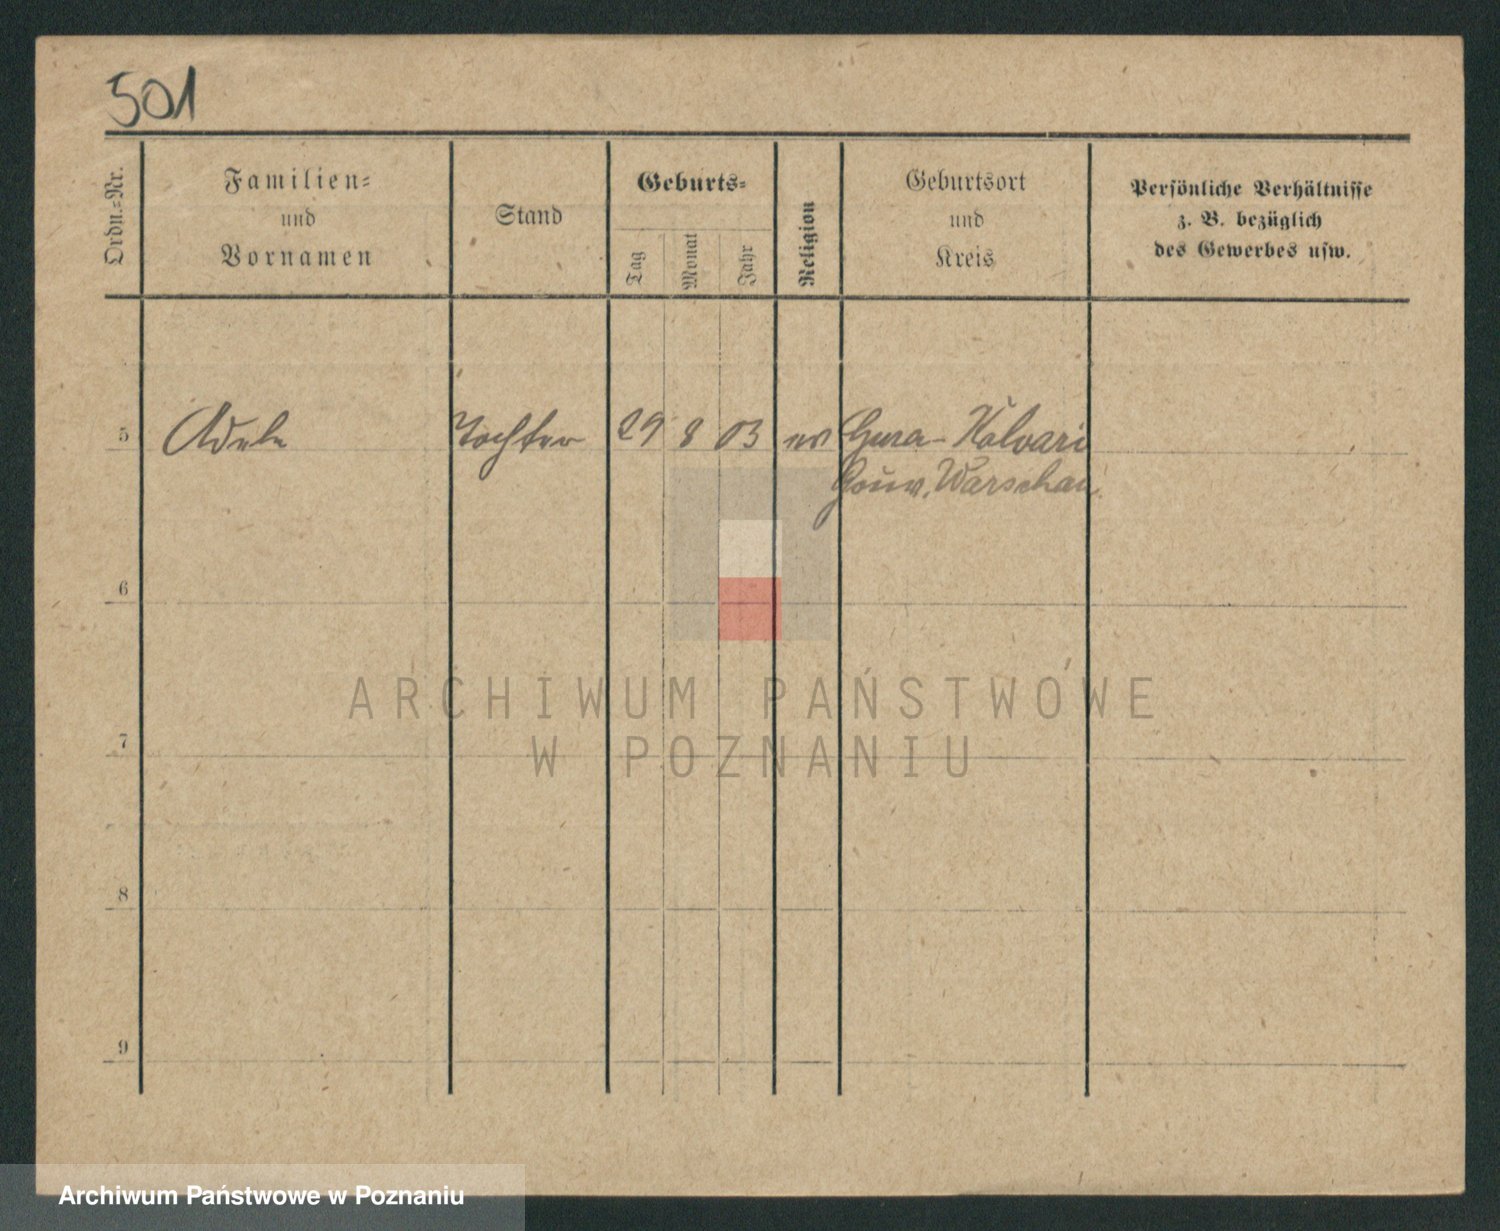 501
Ordn.=Nr.
Familien=
und
Vornamen
Stand
Geburts=
Tag
Monat
Jahr
Religion
Geburtsort
und
Kreis
Persönliche Verhältnisse
z. B. bezüglich
des Gewerbes usw.
5 Adele Tochter 29 8 03 ev Gura-Kalvari
Gouv. Warschau
6
7
8
9
ARCHIWUM PAŃSTWOWE
W POZNANIU
Archiwum Państwowe w Poznaniu